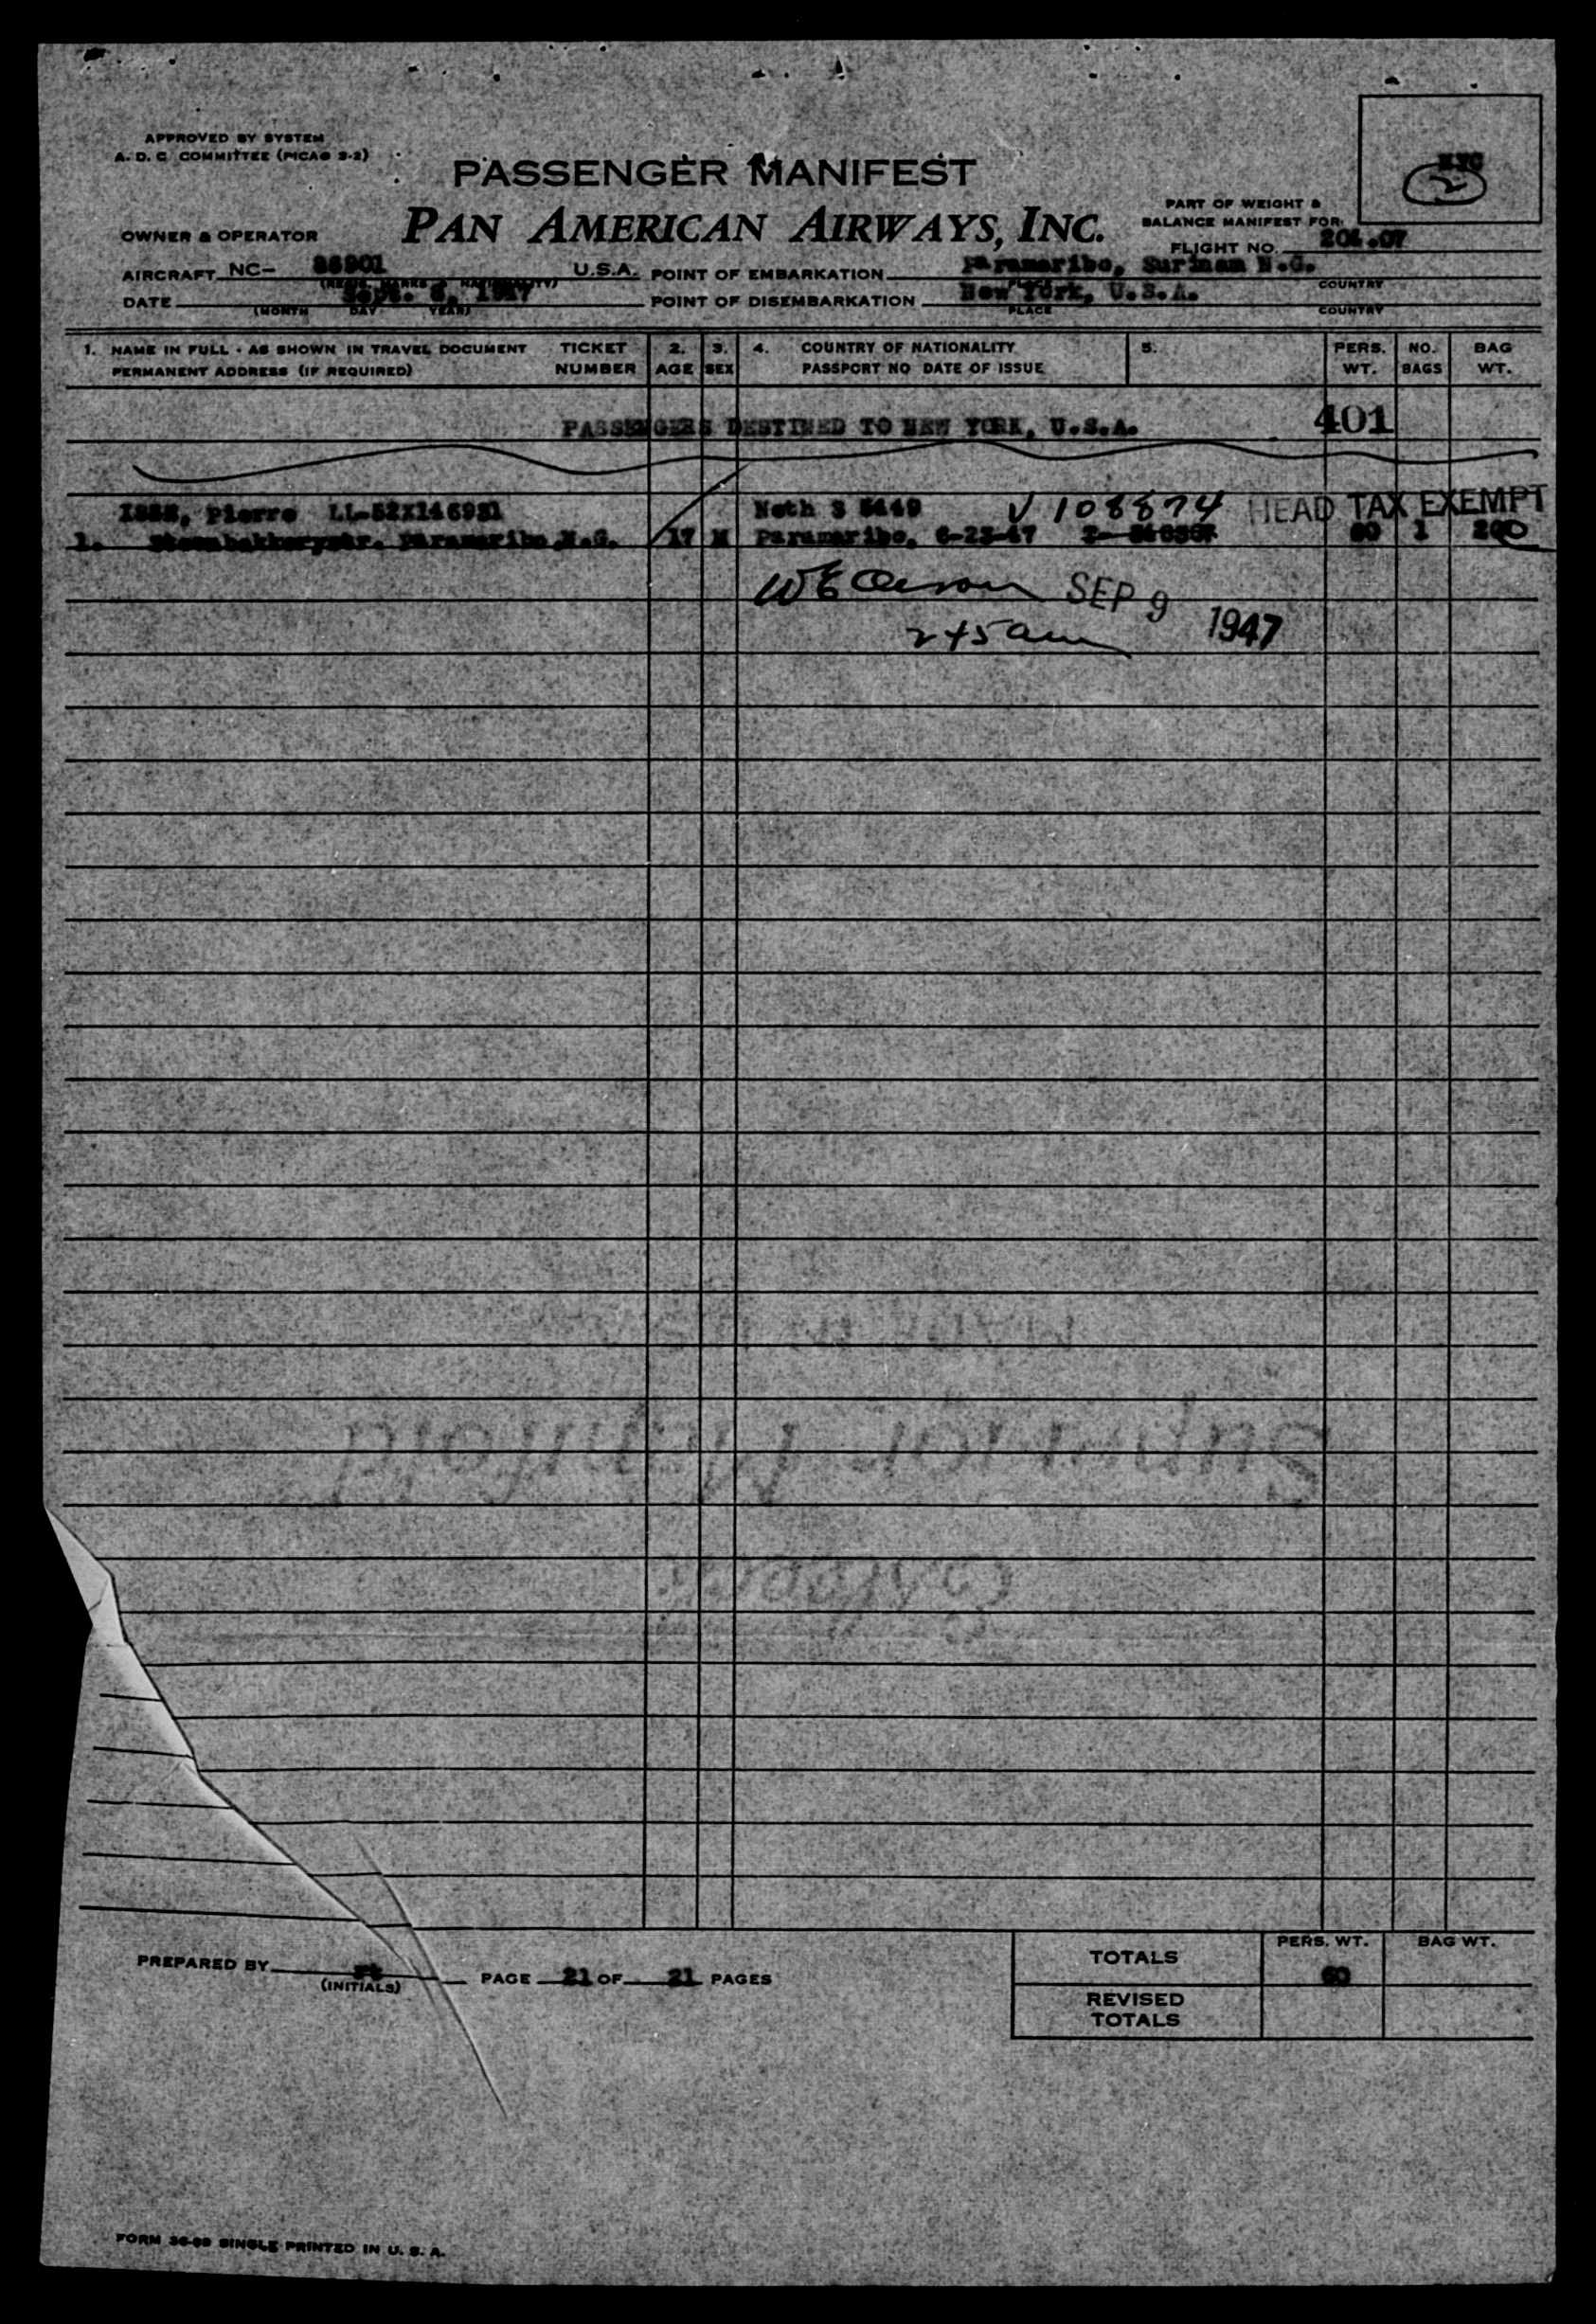 APPROVED BY SYSTEM
A. D. C. COMMITTEE (PICAO 3-2)
PASSENGER MANIFEST
NYC
2
PART OF WEIGHT &
BALANCE MANIFEST FOR
OWNER & OPERATOR
PAN AMERICAN AIRWAYS, INC.
FLIGHT NO. 
AIRCRAFT NC- 88901 U.S.A. POINT OF EMBARKATION Paramaribo, Surinam N.G.
COUNTRY
DATE Sept. 1947 POINT OF DISEMBARKATION New York, U.S.A.
(MONTH DAY YEAR) PLACE COUNTRY
1. NAME IN FULL - AS SHOWN IN TRAVEL DOCUMENT TICKET 2. 3. 4. COUNTRY OF NATIONALITY 5. PERS. NO. BAG
PERMANENT ADDRESS (IF REQUIRED) NUMBER AGE SEX PASSPORT NO DATE OF ISSUE WT. BAGS WT.
PASSENGERS DESTINED TO NEW YORK, U.S.A. 401
Pierre Neth V 108874 HEAD TAX EXEMPT
1. Paramaribo, N.G. 17 M Paramaribo, 6-23-47 60 1
SEP 9 1947
245 am
MADE IN U.S.A.
Superior Manifold
PREPARED BY (INITIALS) PAGE 21 OF 21 PAGES
PERS. WT. BAG WT.
TOTALS 60
REVISED
TOTALS
FORM SINGLE PRINTED IN U. S. A.